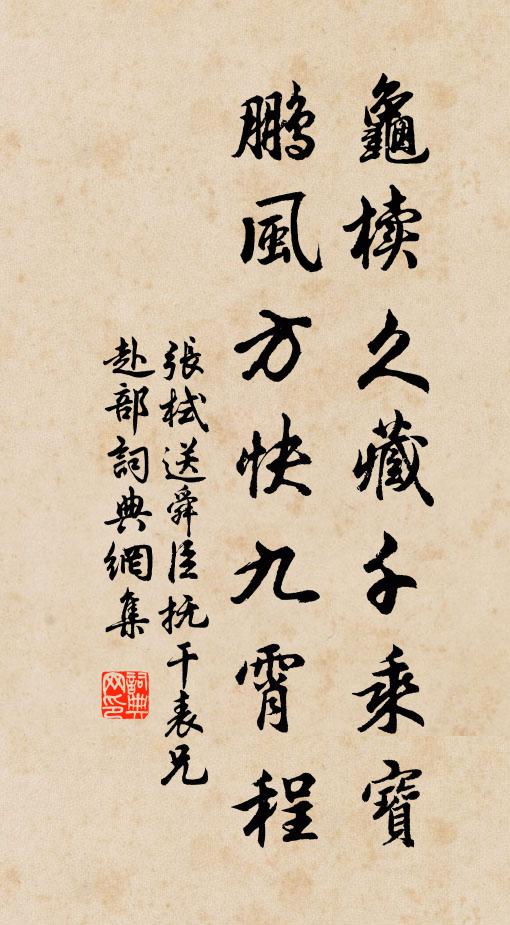 龜櫝久藏千乘寶
鵬風方快九霄程
張栻送舜臣撫干表兄
赴部詞典網集
詞典網印